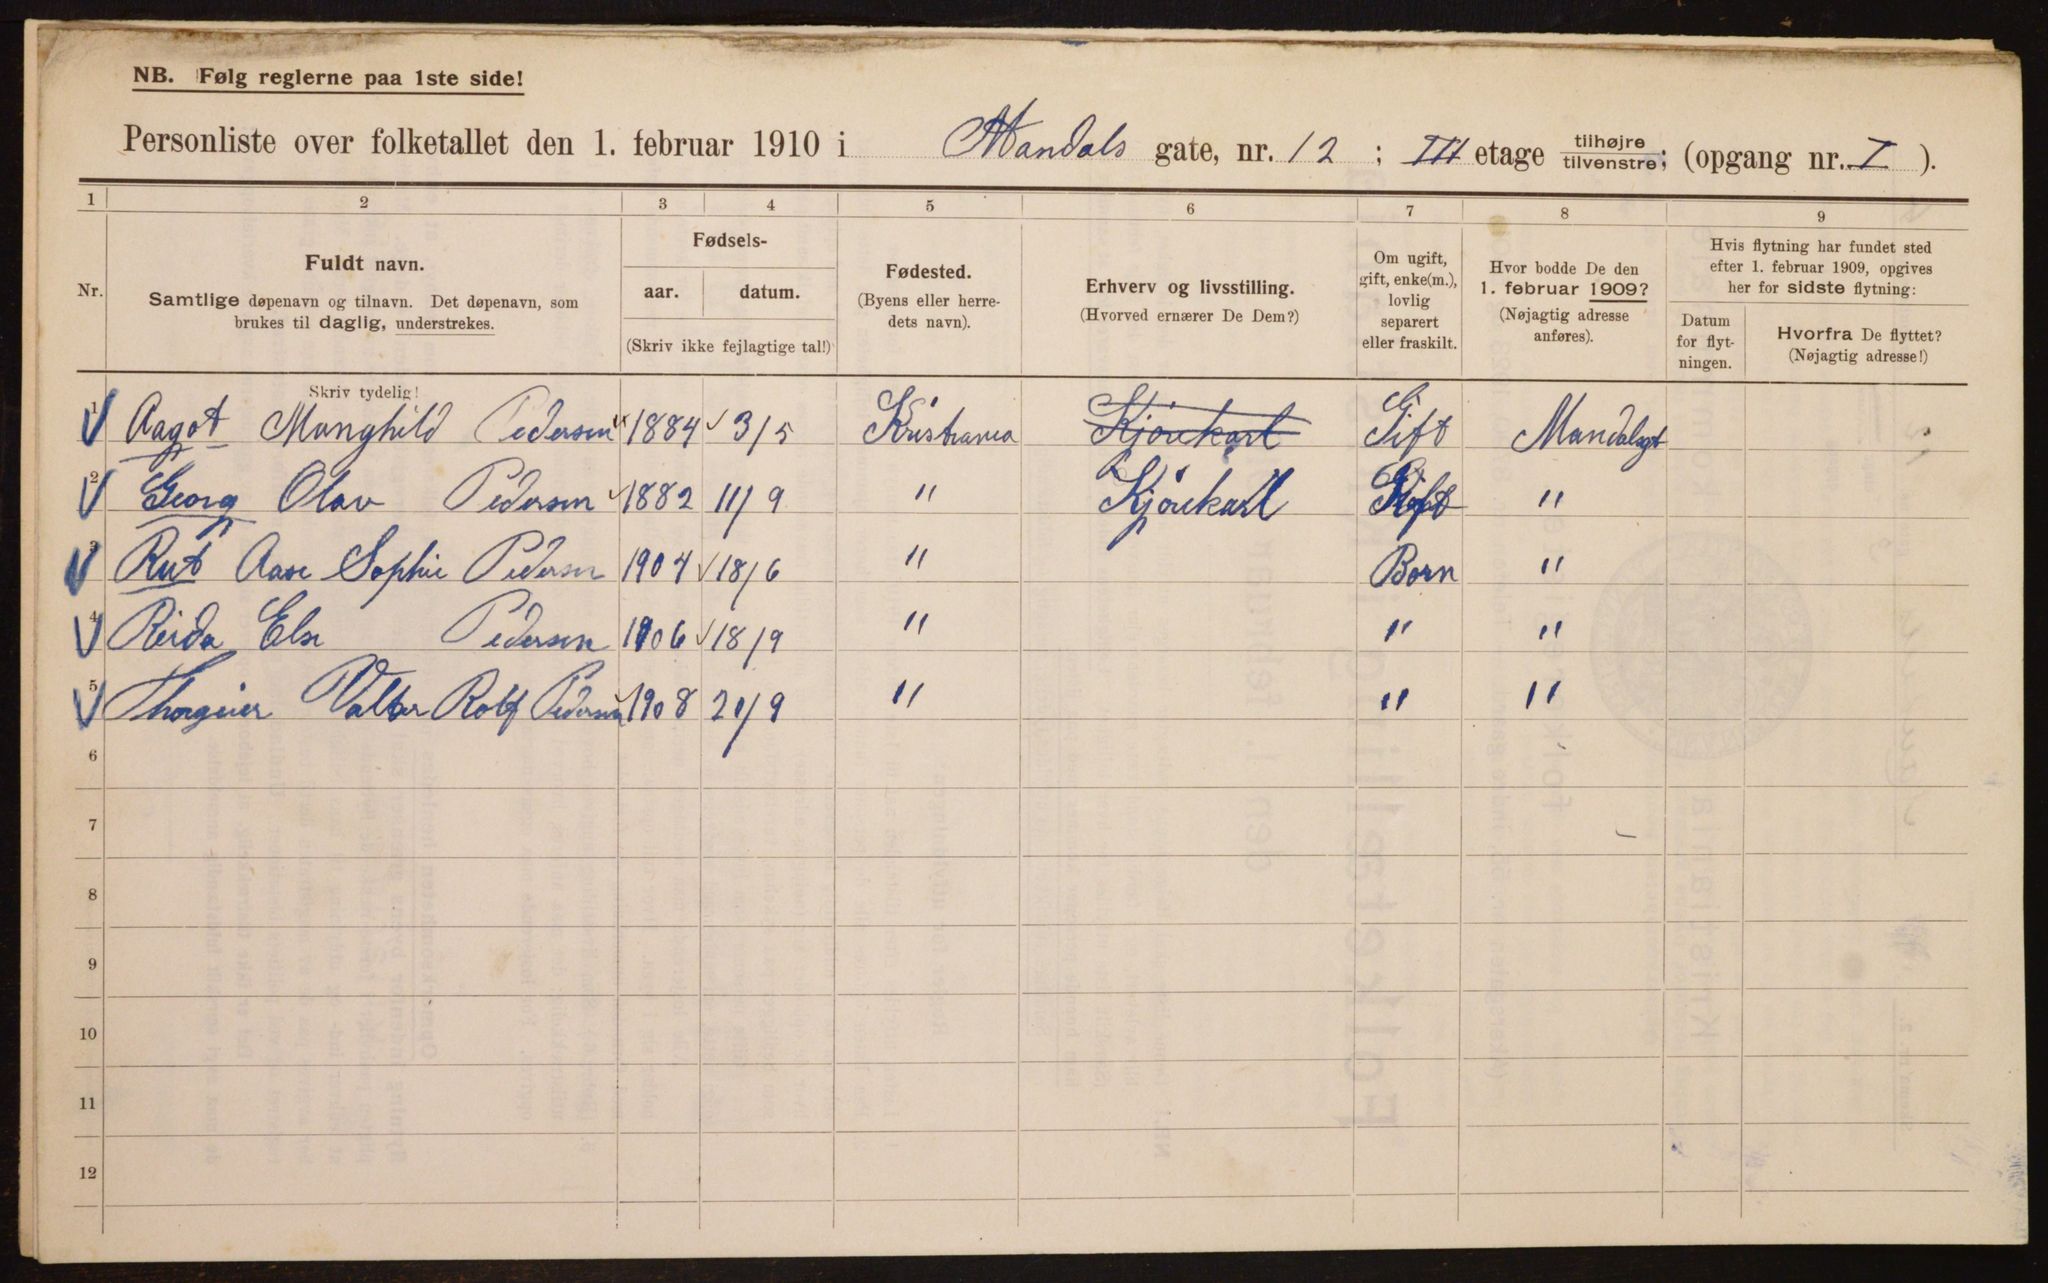 NB. Følg reglerne paa 1ste side!
Personliste over folketallet den 1. februar 1910 i Mandals gate, nr. 12 ; III etage tilhøjre tilvenstre; (opgang nr. I ).
1 2 3 4 5 6 7 8 9
Nr.
Fuldt navn.
Samtlige døpenavn og tilnavn. Det døpenavn, som
brukes til daglig, understrekes.
Fødsels-
aar. datum.
(Skriv ikke fejlagtige tal!)
Fødested.
(Byens eller herre-
dets navn).
Erhverv og livsstilling.
(Hvorved ernærer De Dem?)
Om ugift,
gift, enke(m.),
lovlig
separert
eller fraskilt.
Hvor bodde De den
1. februar 1909?
(Nøjagtig adresse
anføres).
Hvis flytning har fundet sted
efter 1. februar 1909, opgives
her for sidste flytning:
Datum
for flyt-
ningen.
Hvorfra De flyttet?
(Nøjagtig adresse!)
Skriv tydelig!
1 Aagot Manghild Pedersen 1884 3/5 Kristiania Kjørekarl Gift Mandalsgt
2 Georg Olav Pedersen 1882 11/9 " Kjørekarl Gift "
3 Rut Aase Sophie Pedersen 1904 18/6 " Born "
4 Reida Else Pedersen 1906 18/9 " " "
5 Thorgeier Valter Rolf Pedersen 1908 21/9 " " "
6
7
8
9
10
11
12